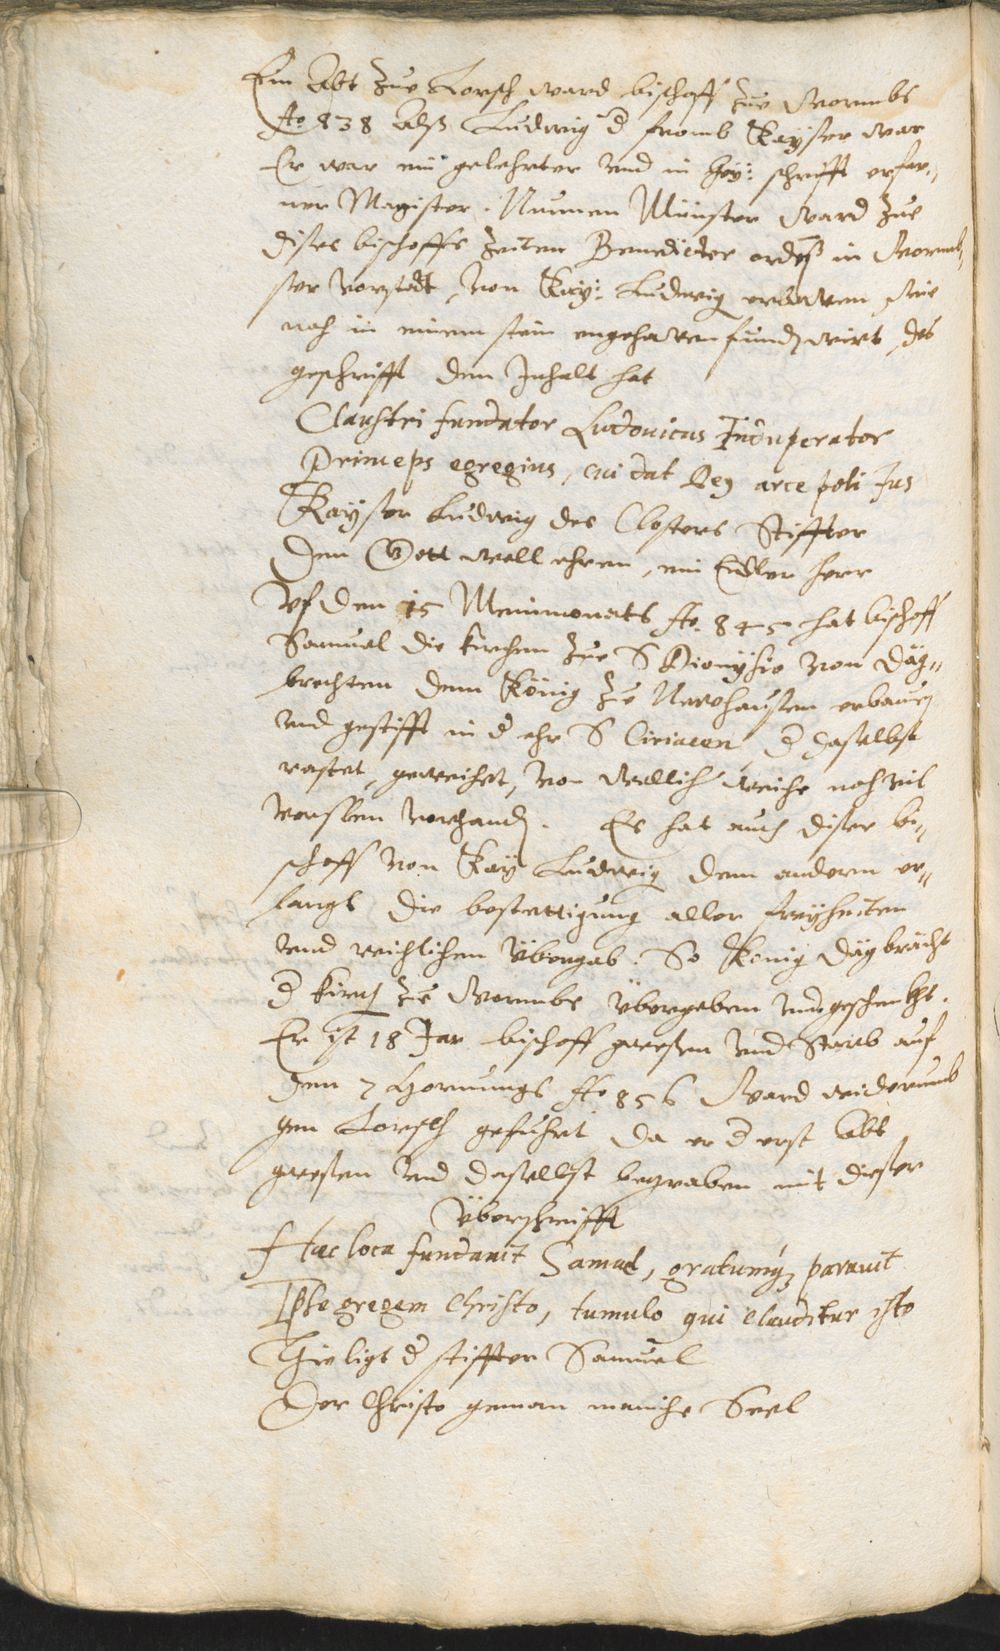 Ein Abt zue Lorsch ward bischoff zue Wormbs
Ao 838 Alß Ludwig d fromb Kayser war
Er war ein gelehrter und in Hey: schrifft erfar„
ner Magister. Nunnen Münster ward zue
dises bischoffs Zeiten Benedicter ordens in Wormb„
ser vorstadt, von Kay: Ludwig erbawen wie
noch in einem stein eingehawen funden wirt, des
geschrifft den Inhalt hat
Claustri fundator Ludouicus Induperator
Princeps egregius, cui dat Rex arce poli Jus
Kayser Ludwig des Closters Stiffter
Den Gott woll ehren, ein Edler herr
Uf den 15 Weinmonats Ao. 845 hat bischoff
Samuel die kirchen zue S Dionysio von Däg„
brechten dem König zu Newhausen erbauen
und gestifft in d ehr S Ciriacen d daselbst
rastet, geweihet, von wellich weihe noch vil
versslen vorhanden. Es hat auch diser bi„
schoff von Kay Ludwig dem andern er„
langt die bestettigung aller freyheiten
und reichlichen Übergab. So König Dägbracht
d kirch zue Wormbs übergeben und geschenkht.
Er ist 18 Jar bischoff gwessen und Starb auf
den 7 Hornungs Ao 856 Ward widerumb
gen Lorsch gefuhrt da er d erst Abt
gwessen und daselbst begraben mit dieser
Überschrifft
Haec loca fundauit Samuel, gratumq parauit
Ipse gregem Christo, tumulo qui clauditur isto
Hie ligt d stiffter Samuel
Der Christo gewan maniche Seel